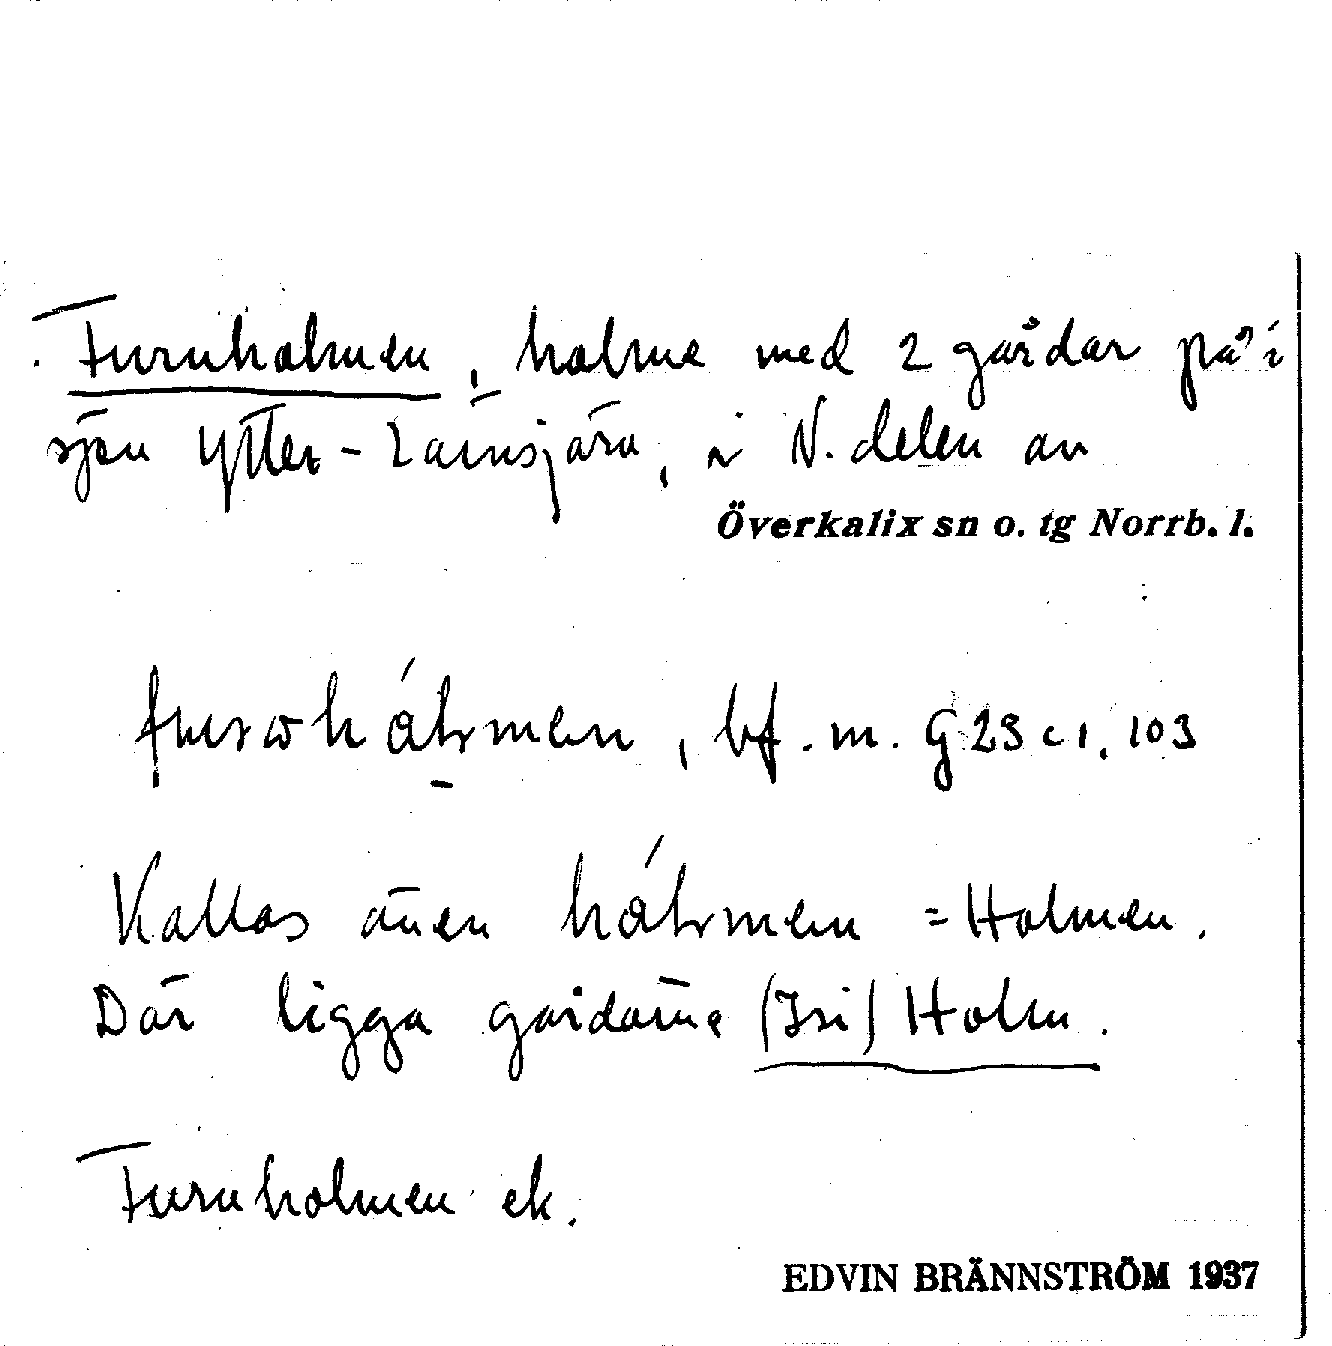 Furuholmen, holme med 2 gårdar på i
sjön Ytter-Lainsjärv, i N. delen av
Överkalix sn o. tg Norrb. l.
bf. m. G 23 c 1, 103
Kallas även = Holmen.
Där ligga gårdarne (Isi) Holm.
Furuholmen ek.
EDVIN BRÄNNSTRÖM 1937